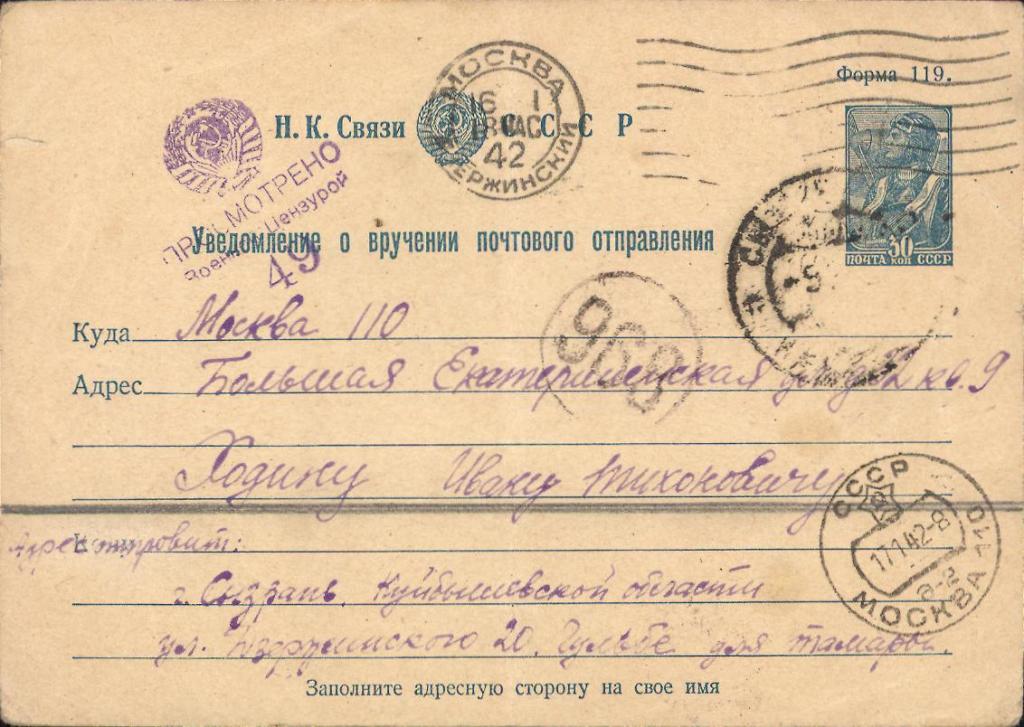 Форма 119.
Н. К. Связи СССР
МОСКВА
16 1
42
ДЗЕРЖИНСКИЙ
ПРОСМОТРЕНО
Военной Цензурой
49
ПОЧТА 30 КОП СССР
Уведомление о вручении почтового отправления
Куда Москва 110
968
Адрес Большая Екатерининская кв. 9
Ходину Ивану Тихоновичу
СССР
17142-8
МОСКВА 110
Адрес отправит:
г. Сызрань, Куйбышевской области
ул. Дзержинского 20. Гульбе для Тамары.
Заполните адресную сторону на свое имя